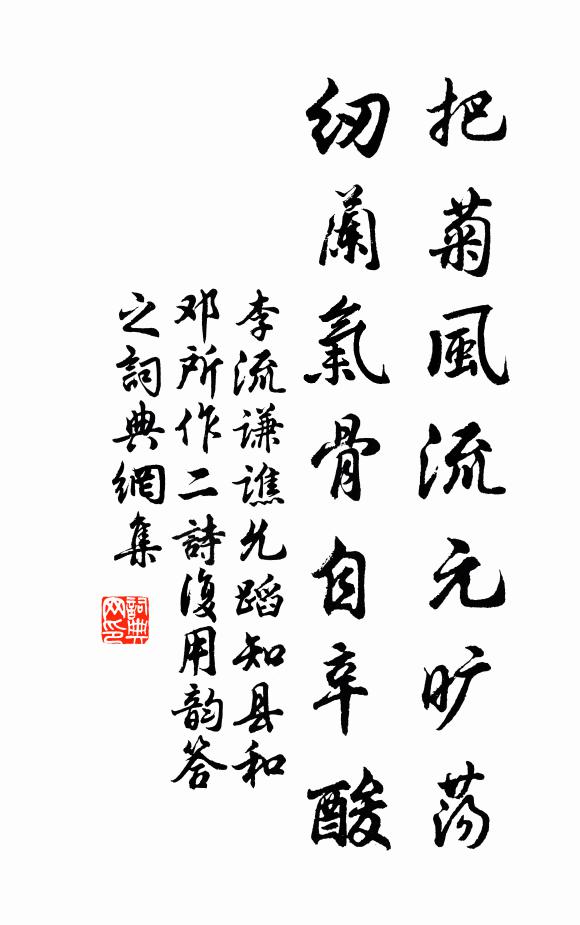 把菊風流元旷蕩
纫蘭氣骨自辛酸
李流谦譙允蹈知县和
邓所作二詩復用韵答
之詞典網集
詞典網印